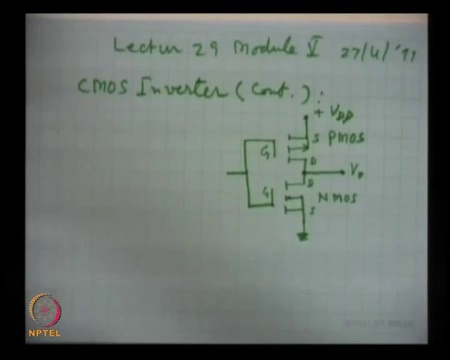 Lectur 29 Module V 27/4/'91
CMOS Inverter (Cont.):
+ VDD
S PMOS
G
D
Vo
D
G
NMOS
S
NPTEL